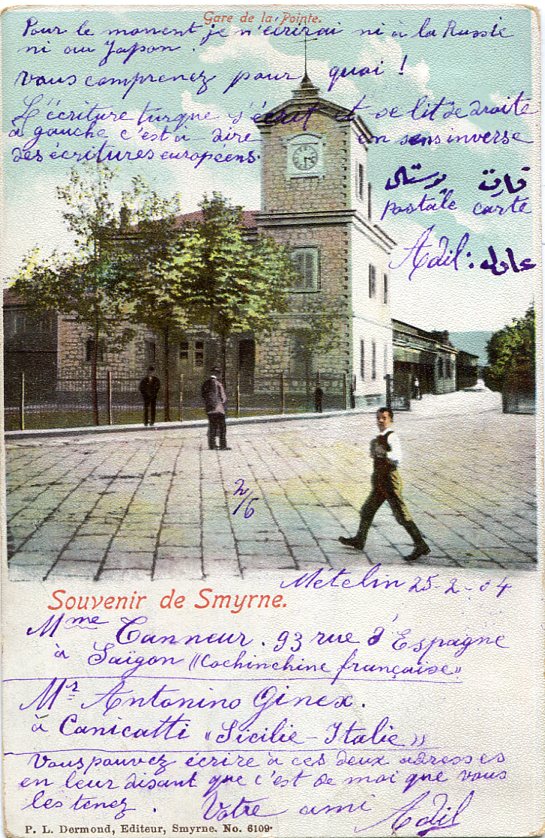 Gare de la Pointe.
Pour le moment je n'écrirai ni à la Russie
ni au Japon.
Vous comprenez pour quoi !
L'écriture turque s'écrit et se lit de droite
à gauche c'est à dire en sens inverse
des écritures européens.
قارت پوستالی
postale carte
Adil : عادل
2/6
Métélin 25-2-04
Souvenir de Smyrne.
Mme Canneur. 93 rue d'Espagne
à Saïgon "Cochinchine française"
Mr Antonino Ginex.
à Canicatti «Sicilie-Italie»
Vous pouvez écrire à ces deux adresses
en leur disant que c'est de moi que vous
les tenez. Votre ami Adil
P. L. Dermond, Editeur, Smyrne. No. 6109